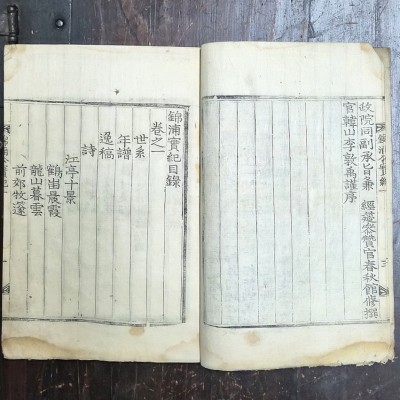 政院同副承旨兼 經筵參贊官春秋館修撰
官韓山李敦禹謹序
錦浦實紀目錄
卷之一
世系
年譜
逸稿
詩
江亭十景
鶴峀晨霞
龍山暮雲
前郊牧邃